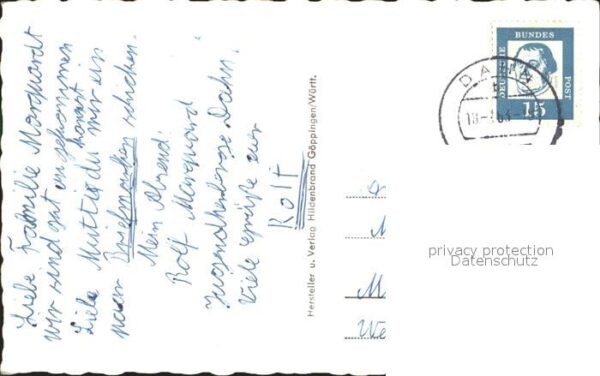 Liebe Familie Marquardt
wir sind gut an gekommen
Liebe Mutti du kannst mir ein
paar Briefmarken schicken.
Mein Absend:
Rolf Marquard
Jugendherberge Dahn.
Viele Grüße euer
Rolf
Hersteller u. Verlag Hildenbrand Göppingen/Württ.
DEUTSCHE
BUNDES
POST
15
DAHN
M
We
privacy protection
Datenschutz